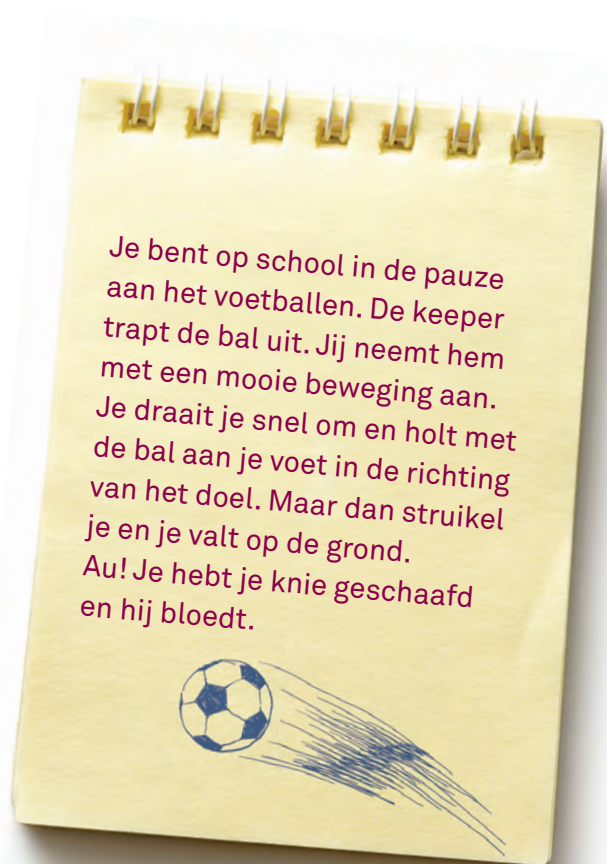 Je bent op school in de pauze
aan het voetballen. De keeper
trapt de bal uit. Jij neemt hem
met een mooie beweging aan.
Je draait je snel om en holt met
de bal aan je voet in de richting
van het doel. Maar dan struikel
je en je valt op de grond.
Au! Je hebt je knie geschaafd
en hij bloedt.